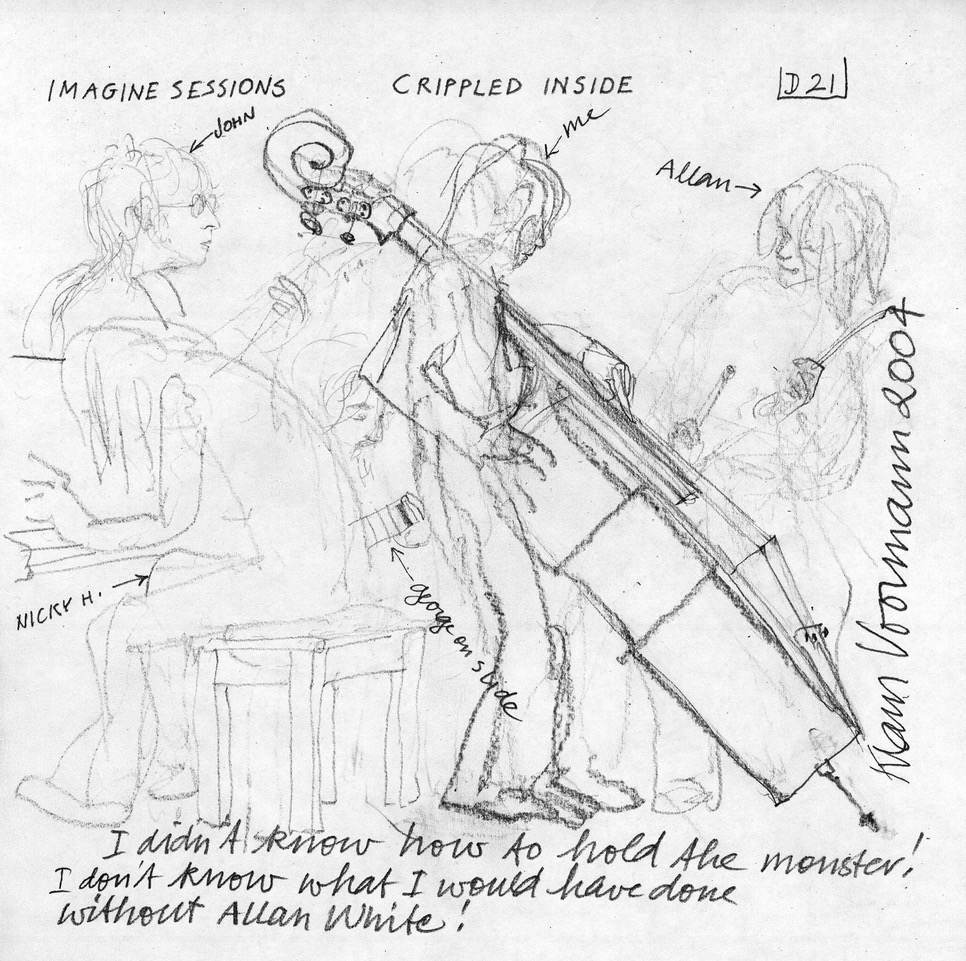 IMAGINE SESSIONS
CRIPPLED INSIDE
D21
JOHN
me
Allan
NICKY H.
george on slide
Klaus Voormann 2004
I didn't know how to hold the monster!
I don't know what I would have done
without Allan White!